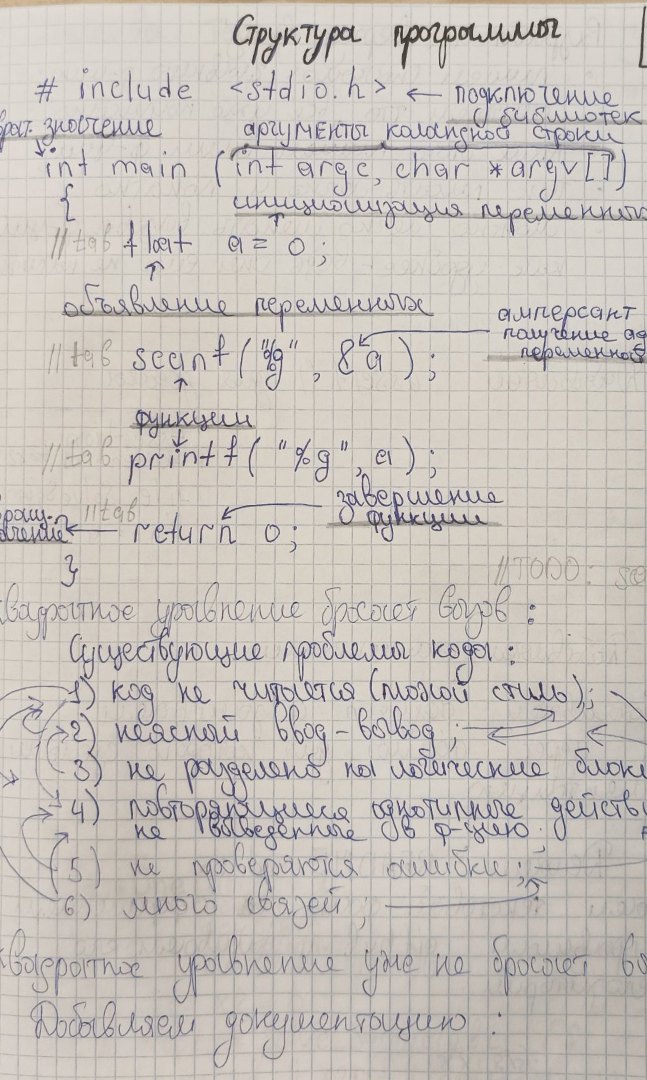 Структура программы
# include <stdio.h> ← подключение
библиотек
врат. значение аргументы командной строки
int main (int argc, char *argv[])
{ инициализация переменных
// tab float a = 0;
объявление переменных
амперсант
получение ад
переменной
// tab scanf("%g", &a);
функции
// tab printf("%g", a);
завершение
функции
// tab
return 0;
}
//TODO: sca
квадратное уравнение бросает вызов:
Существующие проблемы кода:
1) код не читается (плохой стиль);
2) неясной ввод-вывод;
3) не разделено на логические блоки
4) повторяющиеся однотипные действи
не выведенные в ф-цию
5) не проверяются ошибки;
6) много связей;
квадратное уравнение уже не бросает вы
Добавляем документацию: